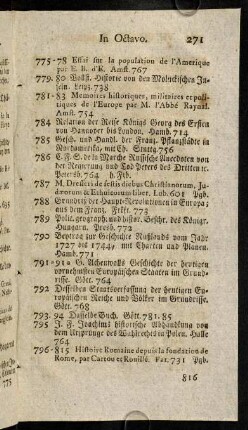 In Octavo. 271
775-78 Essai sur la population de l'Amerique
par E. B. d'E. Amst. 767
779. 80 Vollst. Historie von den Moluckischen In-
seln. Leipz. 738
781-83 Memoires historiques, militaires et poli-
tiques de l'Europe par M. l'Abbé Raynal.
Amst. 754
784 Relation der Reise Königs Georg des Ersten
von Hannover bis London. Hamb. 714
785 Gesch. und Handl. der Franz. Pflanzstädte in
Nordamerika, mit Ch. Stuttg. 756
786 C. F. S. de la Marche Russische Anecdoten von
der Regierung und Tod Peters des Dritten ic.
Petersb. 764 h. Frb.
787 M. Dresseri de festis diebus Christianorum, Ju-
dæorum & Ethnicorum liber. Lub. 601 Pgb.
788 Grundriß der Haupt-Revolutionen in Europa;
aus dem Franz. Erfft. 773
789 Polit. geograph. und histor. Beschr. des Königr.
Hungarn. Hamb. 773
790 Beytrag zur Geschichte Rußlands vom Jahr
1727 bis 1744, mit Charten und Planen.
Hamb. 771
791-91 a G. Achenvalls Geschichte der heutigen
vornehmsten Europäischen Staaten im Grund-
risse. Gött. 764
792 Desselben Staatsverfassung der heutigen Eu-
ropäischen Reiche und Völker im Grundrisse.
Gött. 768
793. 94 Dasselbe Buch. Gött. 781. 85
795 J. F. Joachims historische Abhandlung von
dem Ursprunge des Wahlrechts in Polen. Halle
764
796-815 Histoire Romaine depuis la fondation de
Rome, par Catrou et Rouillé. Par. 731 Pgb.
816